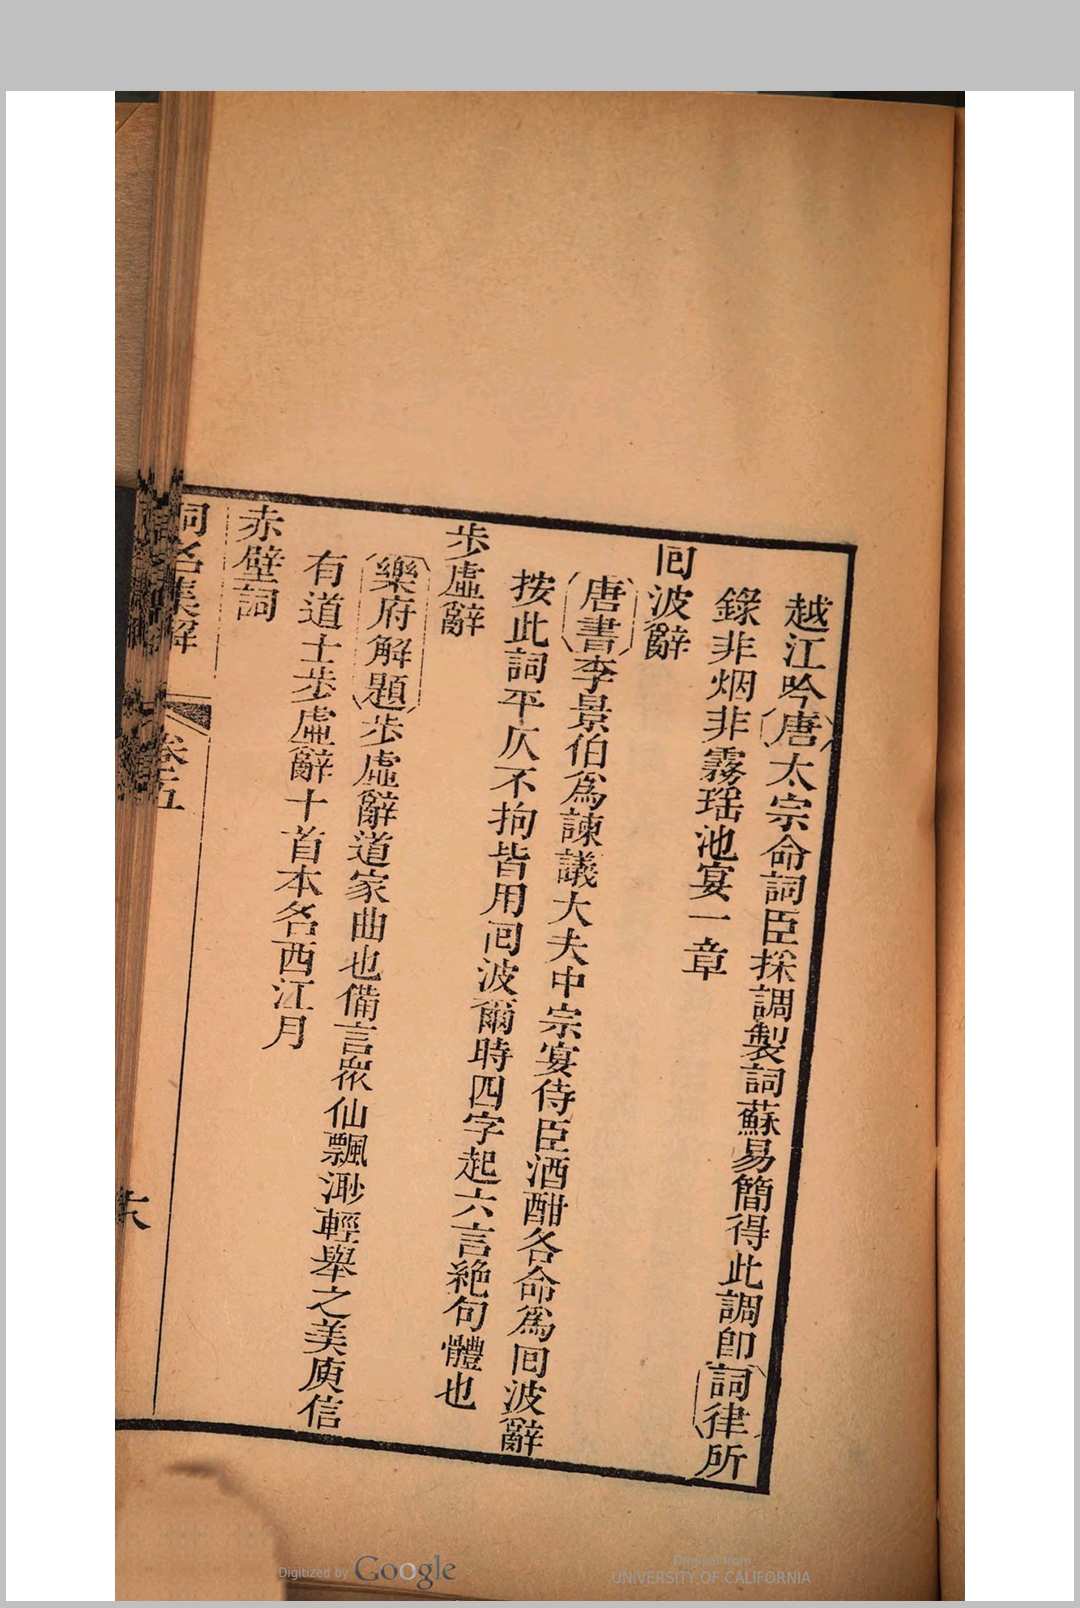 越江吟唐太宗命詞臣採調製詞蘇易簡得此調卽詞律所
錄非烟非霧瑶池宴一章
囘波辭
唐書李景伯爲諫議大夫中宗宴侍臣酒酣各命爲囘波辭
按此詞平仄不拘皆用囘波爾時四字起六言絶句體也
步虛辭
樂府解題步虛辭道家曲也備言衆仙飄渺輕舉之美庾信
有道士步虛辭十首本名西江月
赤壁詞
詞名集解
卷五
六
Digitized by Google
Original from
UNIVERSITY OF CALIFORNIA